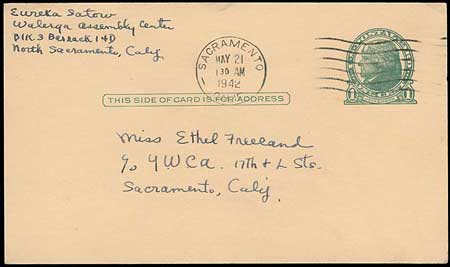 Eureka Satow
Walerga Assembly Center
Blk 3 Barrack 14D
North Sacramento, Calif.
SACRAMENTO
MAY 21
1 30 AM
1942
THIS SIDE OF CARD IS FOR ADDRESS
1 1
Miss Ethel Freeland
c/o YWCA. 17th & L Sts.
Sacramento, Calif.